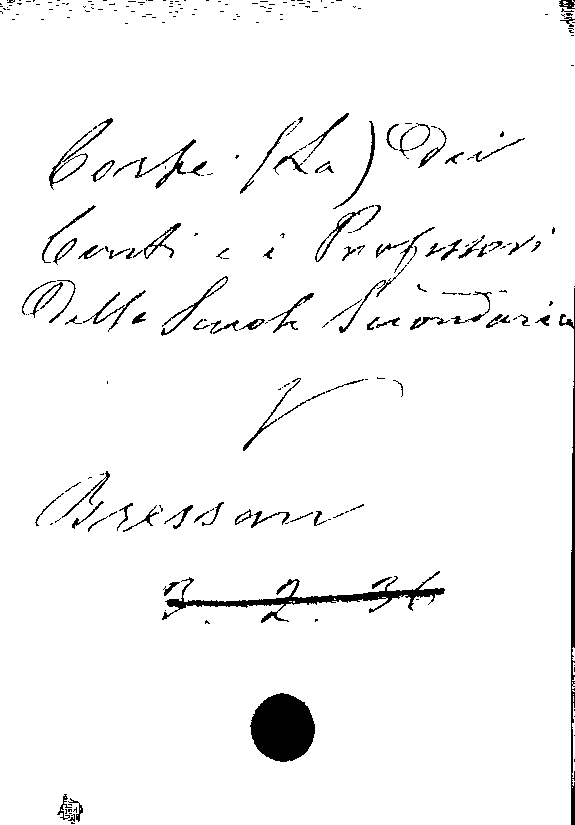 Corte (La) Dei
Conti e i Professori
Della Scuola Secondaria
V
Bressan
3. 2. 36